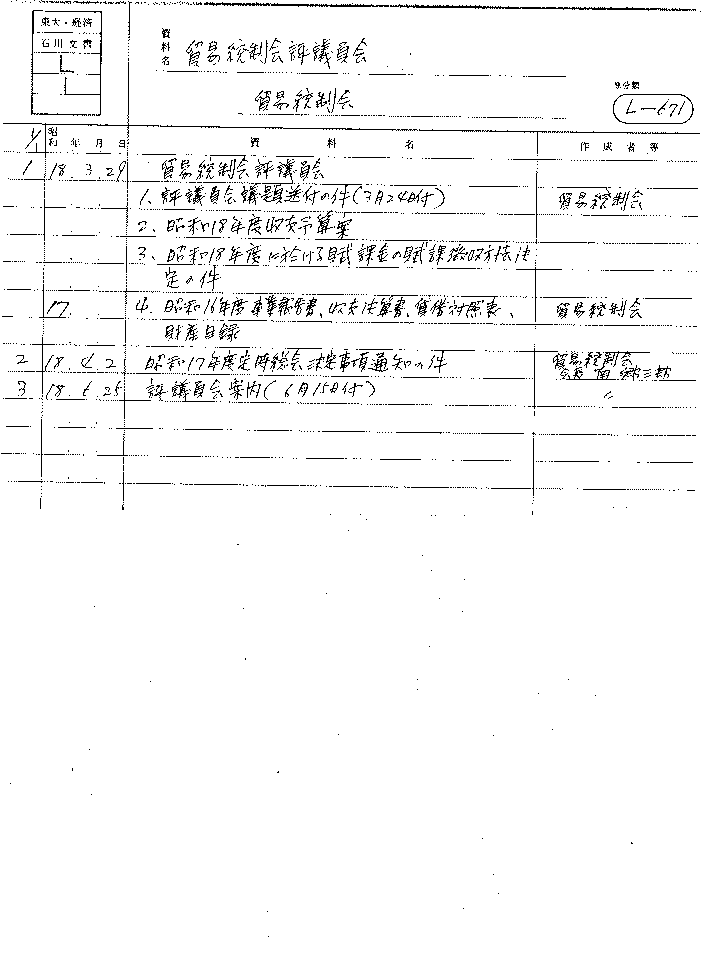 東大・経済
石川文書
資料名 貿易統制会評議員会
貿易統制会
L-671
1/1 昭和 年 月 日 資 料 名 作成者等
1 18. 3. 29 貿易統制会評議員会
1. 評議員会議題送付の件(3月24日付) 貿易統制会
2. 昭和18年度収支予算案
3. 昭和18年度に於ける賦課金の賦課徴収方法決
定の件
17. 4. 昭和16年度事業報告書、収支決算書、貸借対照表、 貿易統制会
財産目録
2 18 4. 2 昭和17年度定時総会決定事項通知の件 貿易統制会
会長
3 18. 6 25 評議員会案内(6月15日付) 〃